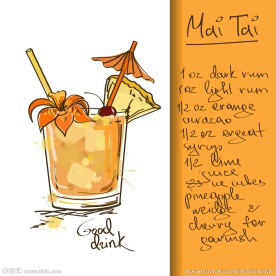 Mai Tai
1 oz dark rum
1 oz light rum
1/2 oz orange
curacao
1/2 oz orgeat
syrup
1/2 lime
juice
ice cubes
pineapple
weidgt &
cherry for
garnish
Good
drink